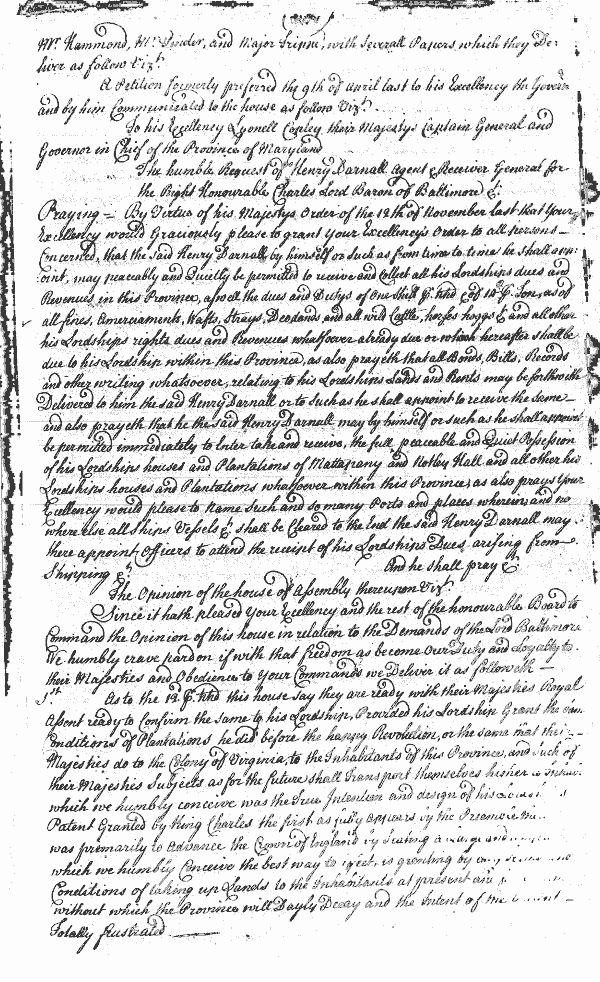 Mr. Hammond, Mr. Pinder, and Major Frinne, with Severall Papers which they De=
liver as follow Vizt.
A Petition formerly preferred the 9th of April last to his Excellency the Govern
and by him Communicated to the house as follow Vizt.
To his Excellency Lyonell Copley their Majestys Captain General and
Governor in Chief of the Province of Maryland
The humble Request of Henry Darnall Agent & Receiver General for
the Right Honourable Charles Lord Baron of Baltimore &c.
Praying = By Virtue of his Majestys Order of the 12th of November last that Your
Excellency would Graciously please to grant your Excellency's Order to all persons
Concerned, that the said Henry Darnall by himself or such as from time to time he shall app
oint, may peaceably and Quietly be permitted to receive and Collect all his Lordships dues and
Revenues in this Province, aswell the dues and Dutys of One Shill. P. hhd & of 14d P. Ton, as of
all fines, Amerciaments, Wafts, Strays, Deodands and all wild Cattle, horses hoggs & and all other
his Lordships rights dues and Revenues whatsoever already due or which hereafter shall be
due to his Lordship within this Province, as also prayeth that all Bonds, Bills, Records
and other writing whatsoever, relating to his Lordships Lands and Rents may be forthwith
Delivered to him the said Henry Darnall or to such as he shall appoint to receive the same
and also prayeth that he the said Henry Darnall may by himself or such as he shall appoint
be permitted immediately to Enter take and receive, the full peaceable and Quiet Possession
of his Lordships houses and Plantations of Mattapany and Notley Hall and all other his
Lordships houses and Plantations whatsoever within this Province, as also prays Your
Excellency would please to name Such and so many Ports and places wherein and no
where else all Ships Vessels &c. shall be Cleared to the End the said Henry Darnall may
there appoint Officers to attend the receipt of his Lordships Dues arising from
Shipping &c. And he shall pray &c.
The Opinion of the house of Assembly thereupon Vizt.
Since it hath pleased Your Excellency and the rest of the honourable Board to
Command the Opinion of this house in relation to the Demands of the Lord Baltimore
We humbly crave pardon if with that freedom as become Our Duty and Loyalty to
their Majesties and Obedience to Your Commands we Deliver it as followeth
1st. As to the 12. P. hhd this house say they are ready with their Majesties Royal
Assent ready to Confirm the same to his Lordship, Provided his Lordship Grant the same
Conditions of Plantations he did before the happy Revolution, or the same that their
Majesties do to the Colony of Virginia, to the Inhabitants of this Province, and such of
their Majestis Subjects as for the future shall transport themselves hither to Inhabit
which we humbly conceive was the True Intention and design of his Lordships
Patent Granted by King Charles the first as fully appears by the Preamble
was primarily to advance the Crown of England by Seating a large and
which we humbly Conceive the best way to effect, is granting by
Conditions of taking up Lands to the Inhabitants at present and
without which the Province will Dayly Decay and the Intent of the
Totally frustrated